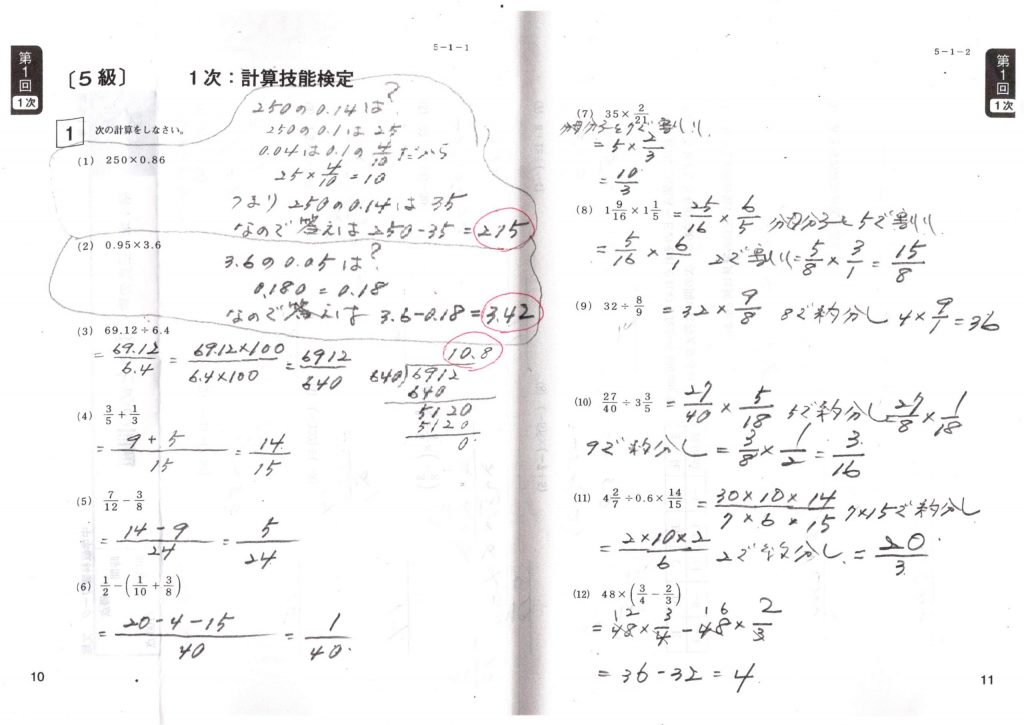 5-1-1
第1回
1次
〔5級〕 1次:計算技能検定
1 次の計算をしなさい。
250の0.14は?
250の0.1は25
0.04は0.1の4/10だから
25×4/10=10
つまり250の0.14は35
なので答えは250-35=215
(1) 250×0.86
(2) 0.95×3.6
3.6の0.05は?
0.180=0.18
なので答えは 3.6-0.18=3.42
(3) 69.12÷6.4
=69.12/6.4=69.12×100/6.4×100=6912/640
10.8
640)6912
640
5120
5120
0
(4) 3/5+1/3
=9+5/15=14/15
(5) 7/12-3/8
=14-9/24=5/24
(6) 1/2-(1/10+3/8)
=20-4-15/40=1/40
10
5-1-2
第1回
1次
(7) 35×2/21
分母分子を7で割り
=5×2/3
=10/3
(8) 1 9/16×1 1/5=25/16×6/5 分母分子を5で割り
=5/16×6/1 2で割り=5/8×3/1=15/8
(9) 32÷8/9=32×9/8 8で約分し4×9/1=36
(10) 27/40÷3 3/5=27/40×5/18 5で約分し=27/8×1/18
9で約分し=3/8×1/2=3/16
(11) 4 2/7÷0.6×14/15=30×10×14/7×6×15 7×15で約分し
=2×10×2/6 2で約分し=20/3
(12) 48×(3/4-2/3)
12 16
=48×3/4-48×2/3
=36-32=4
11